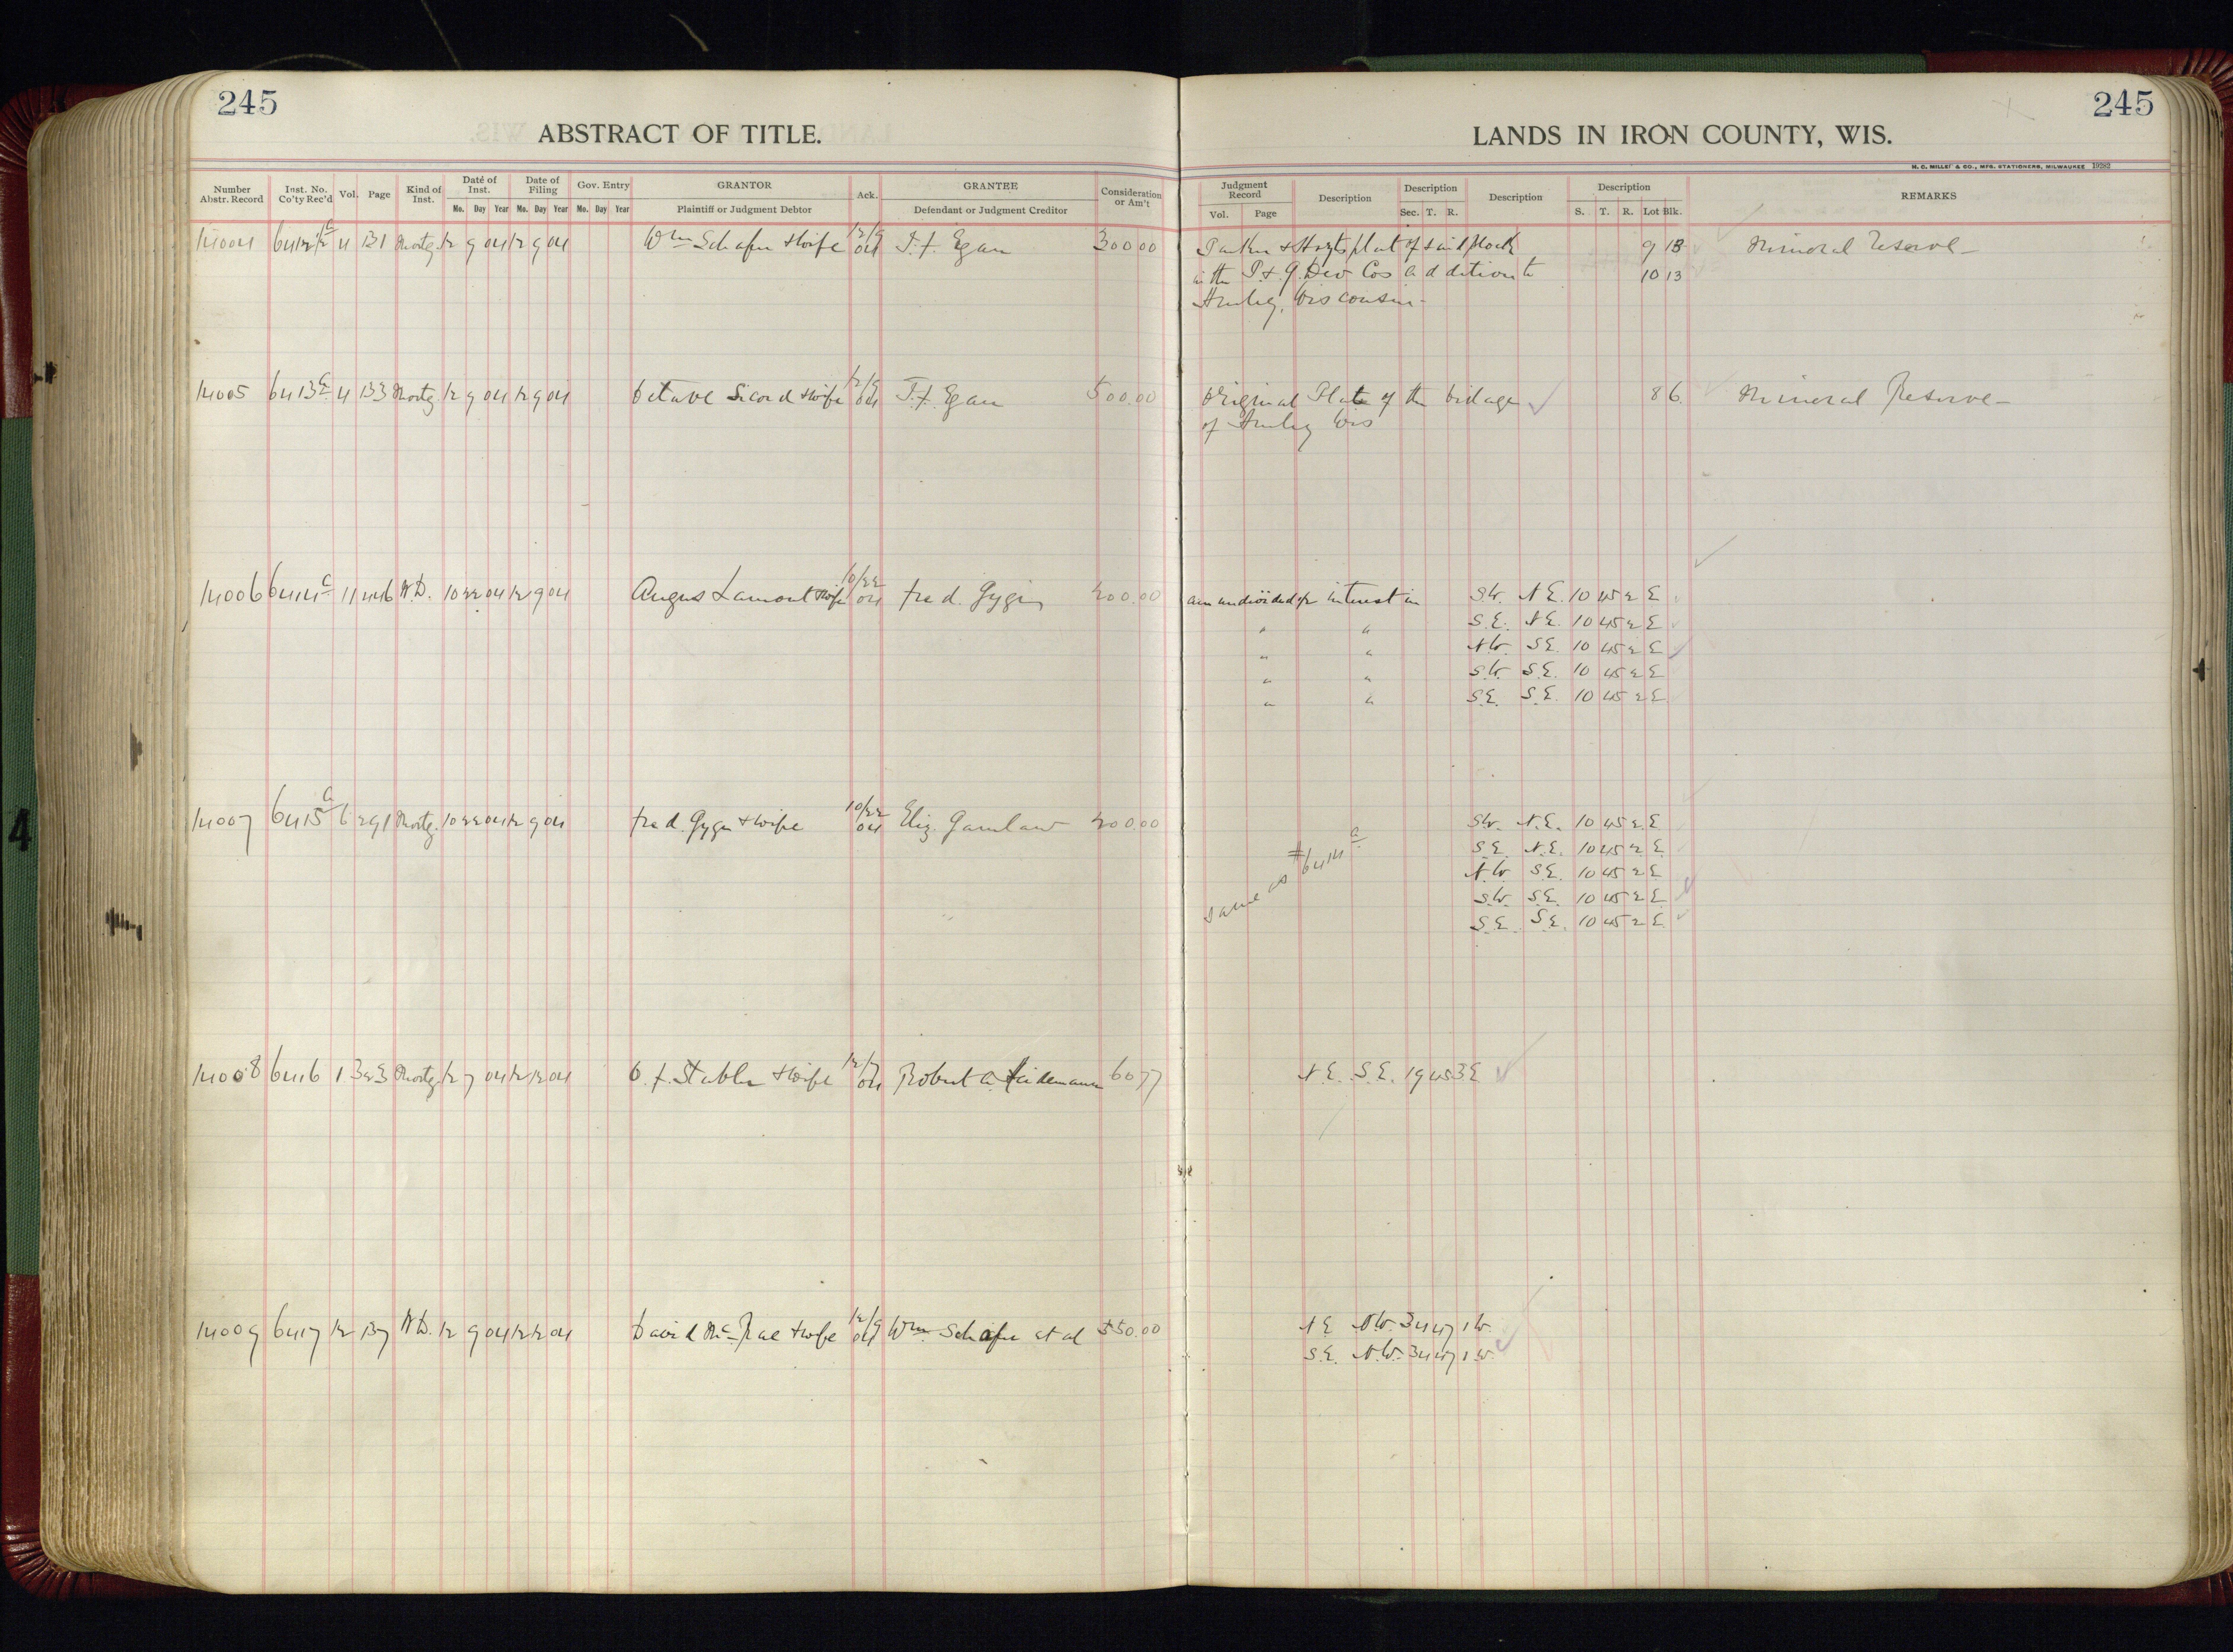 245
245
ABSTRACT OF TITLE.
LANDS IN IRON COUNTY, WIS.
H. C. MILLER & CO., MFG. STATIONERS, MILWAUKEE 19282
Number Abstr. Record Inst. No. Co'ty Rec'd Vol. Page Kind of Inst. Date of Inst. Mo. Day Year Date of Filing Mo. Day Year Gov. Entry Mo. Day Year GRANTOR Plaintiff or Judgment Debtor Ack. GRANTEE Defendant or Judgment Creditor Consideration or Am't
Judgment Record Vol. Page Description Description Sec. T. R. Description Description S. T. R. Lot Blk. REMARKS
14004 6412½ a 4 131 Mortg. 12 9 04 12 9 04 Wm Schafer & Wife 12/9 04 T. F. Egan 300 00 Parker & Hoyts plat of said block 9 13 Mineral Reserve
in the P. & G. Dev Cos addition to 10 13
Hurley, Wisconsin
14005 6413 a 4 133 Mortg 12 9 04 12 9 04 Octave Sicard & Wife 12/9 04 T. F. Egan 500.00 Original Plat of the Village 8 6. Mineral Reserve
of Hurley Wis
14006 6414 a 11 446 W.D. 10 22 04 12 9 04 Angus Lamont & Wife 10/22 04 Fred. Gygi 200.00 an undivided ½ interest in S.W. N.E. 10 45 2 E
" " S.E. N.E. 10 45 2 E
" " N.W. S.E. 10 45 2 E
" " S.W. S.E. 10 45 2 E
" " S.E. S.E. 10 45 2 E
14007 6415 a 6 291 Mortg. 10 22 04 12 9 04 Fred. Gygi & Wife 10/22 04 Eliz. 200.00 Same as #6414 a S.W. N.E. 10 45 2 E
S.E. N.E. 10 45 2 E
N.W. S.E. 10 45 2 E
S.W. S.E. 10 45 2 E
S.E. S.E. 10 45 2 E
14008 6416 1 323 Mortg. 12 7 04 12 12 04 O. F. Stabler & Wife 12/7 04 Robert A. 60 77 N.E. S.E. 19 45 3 E
14009 6417 12 137 W.D. 12 9 04 12 12 04 David McRae & Wife 12/9 04 Wm. Schafer et al 550.00 N.E. N.W. 34 47 1 W.
S.E. N.W. 34 47 1 W.
4